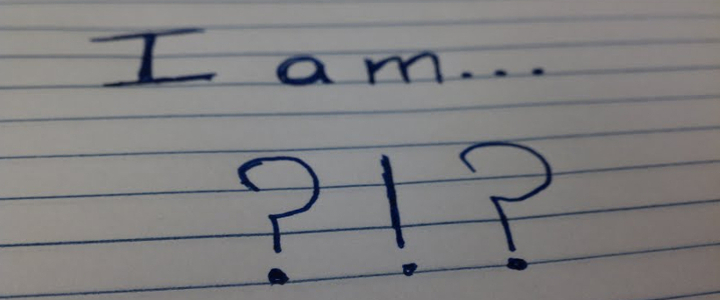 I am...
?!?